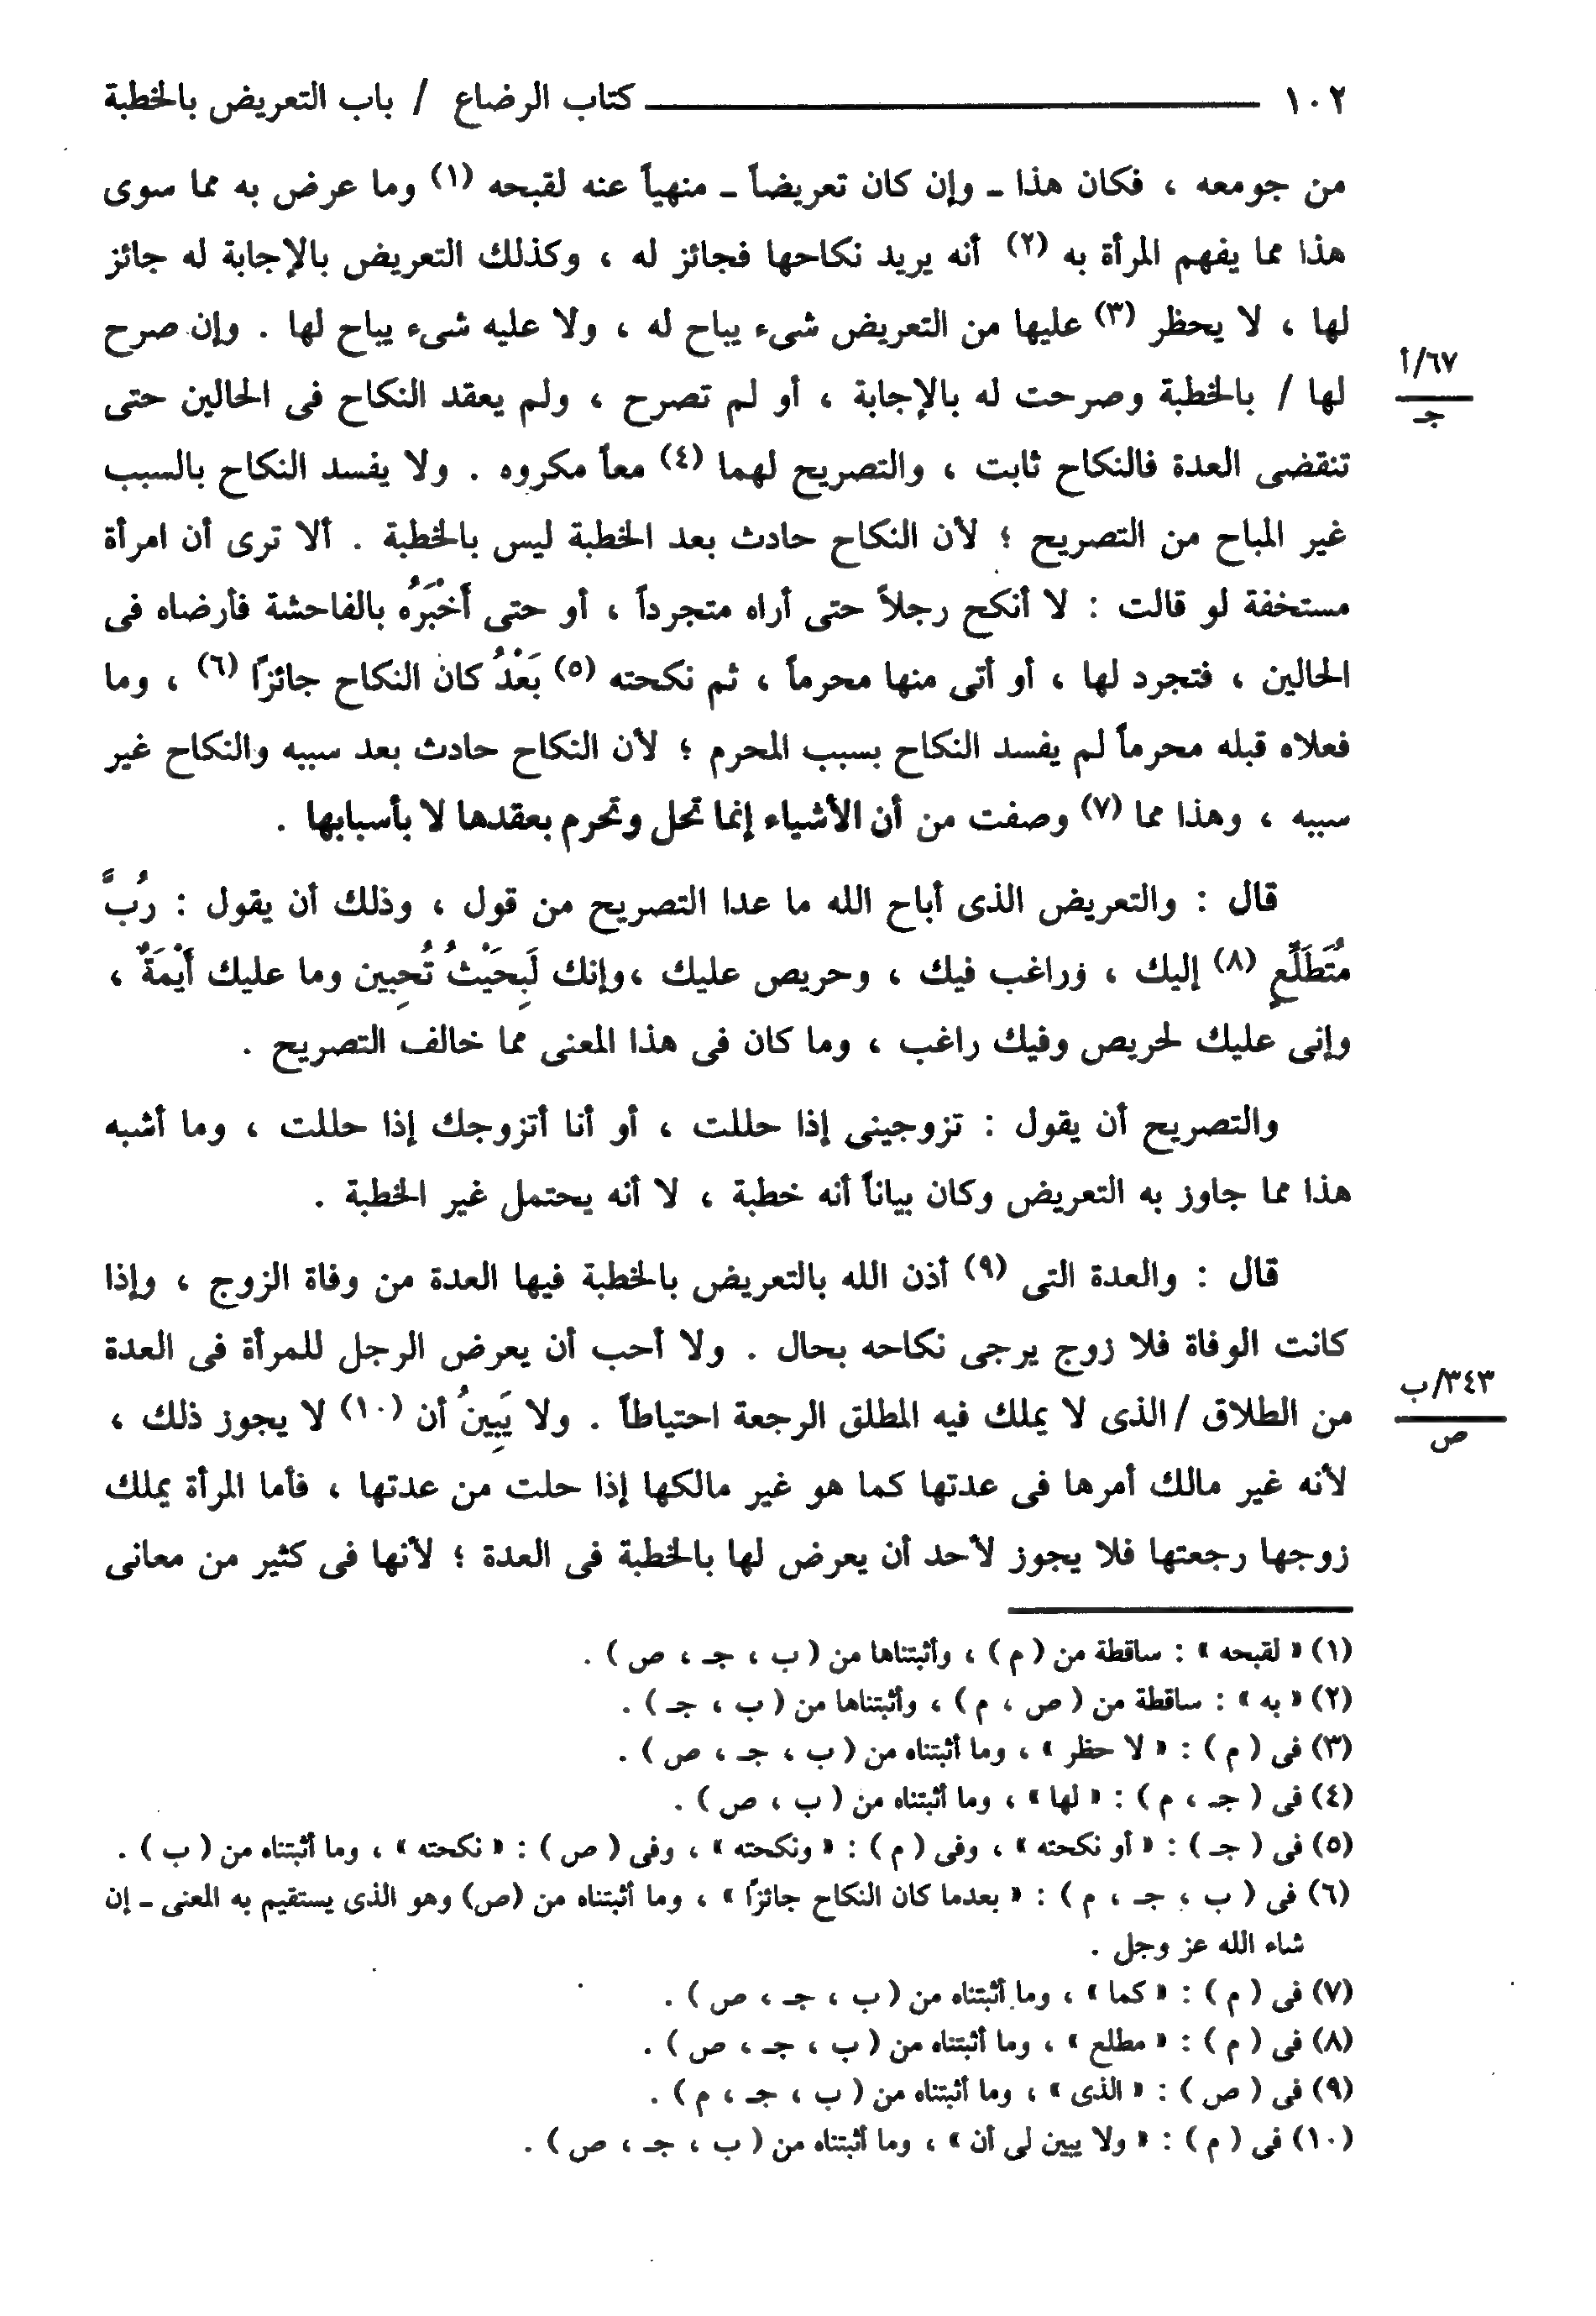 ١٠٢ كتاب الرضاع / باب التعريض بالخطبة
من جومعه ، فكان هذا ـ وإن كان تعريضاً ـ منهياً عنه لقبحه (١) وما عرض به مما سوى
هذا مما يفهم المرأة به (٢) أنه يريد نكاحها فجائز له ، وكذلك التعريض بالإجابة له جائز
لها ، لا يحظر (٣) عليها من التعريض شىء يباح له ، ولا عليه شىء يباح لها . وإن صرح
٦٧/أ
جـ
لها / بالخطبة وصرحت له بالإجابة ، أو لم تصرح ، ولم يعقد النكاح فى الحالين حتى
تنقضى العدة فالنكاح ثابت ، والتصريح لهما (٤) معاً مكروه . ولا يفسد النكاح بالسبب
غير المباح من التصريح ؛ لأن النكاح حادث بعد الخطبة ليس بالخطبة . ألا ترى أن امرأة
مستخفة لو قالت : لا أنكح رجلاً حتى أراه متجرداً ، أو حتى أَخْبَرُه بالفاحشة فأرضاه فى
الحالين ، فتجرد لها ، أو أتى منها محرماً ، ثم نكحته (٥) بَعْدُ كان النكاح جائزاً (٦) ، وما
فعلاه قبله محرماً لم يفسد النكاح بسبب المحرم ؛ لأن النكاح حادث بعد سببه والنكاح غير
سببه ، وهذا مما (٧) وصفت من أن الأشياء إنما تحل وتحرم بعقدها لا بأسبابها .
قال : والتعريض الذى أباح الله ما عدا التصريح من قول ، وذلك أن يقول : رُبَّ
مُتَطَلِّعٍ (٨) إليك ، وراغب فيك ، وحريص عليك ،وإنك لَبِحَيْثُ تُحِبين وما عليك أَيْمَةٌ ،
وإنى عليك لحريص وفيك راغب ، وما كان فى هذا المعنى مما خالف التصريح .
والتصريح أن يقول : تزوجينى إذا حللت ، أو أنا أتزوجك إذا حللت ، وما أشبه
هذا مما جاوز به التعريض وكان بياناً أنه خطبة ، لا أنه يحتمل غير الخطبة .
قال : والعدة التى (٩) أذن الله بالتعريض بالخطبة فيها العدة من وفاة الزوج ، وإذا
كانت الوفاة فلا زوج يرجى نكاحه بحال . ولا أحب أن يعرض الرجل للمرأة فى العدة
٣٤٣/ب
ص
من الطلاق / الذى لا يملك فيه المطلق الرجعة احتياطاً . ولا يَبِينُ أن (١٠) لا يجوز ذلك ،
لأنه غير مالك أمرها فى عدتها كما هو غير مالكها إذا حلت من عدتها ، فأما المرأة يملك
زوجها رجعتها فلا يجوز لأحد أن يعرض لها بالخطبة فى العدة ؛ لأنها فى كثير من معانى
(١) « لقبحه » : ساقطة من ( م ) ، وأثبتناها من ( ب ، جـ ، ص ) .
(٢) « به » : ساقطة من ( ص ، م ) ، وأثبتناها من ( ب ، جـ ) .
(٣) فى ( م ) : « لا حظر » ، وما أثبتناه من ( ب ، جـ ، ص ) .
(٤) فى ( جـ ، م ) : « لها » ، وما أثبتناه من ( ب ، ص ) .
(٥) فى ( جـ ) : « أو نكحته » ، وفى ( م ) : « ونكحته » ، وفى ( ص ) : « نكحته » ، وما أثبتناه من ( ب ) .
(٦) فى ( ب ، جـ ، م ) : « بعدما كان النكاح جائزاً » ، وما أثبتناه من (ص) وهو الذى يستقيم به المعنى ـ إن
شاء الله عز وجل .
(٧) فى ( م ) : « كما » ، وما أثبتناه من ( ب ، جـ ، ص ) .
(٨) فى ( م ) : « مطلع » ، وما أثبتناه من ( ب ، جـ ، ص ) .
(٩) فى ( ص ) : « الذى » ، وما أثبتناه من ( ب ، جـ ، م ) .
(١٠) فى ( م ) : « ولا يبين لى أن » ، وما أثبتناه من ( ب ، جـ ، ص ) .